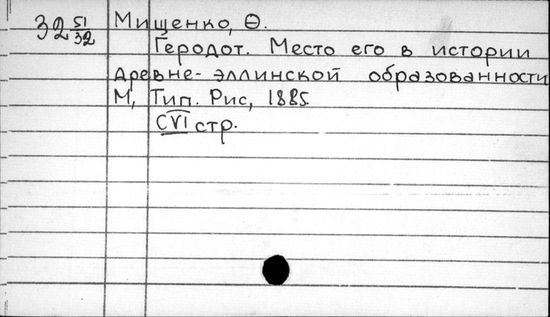 32 51/32 Мищенко, Ѳ.
Геродот. Место его в истории
древне-эллинской образованности
М, Тип. Рис, 1885
CVI стр.